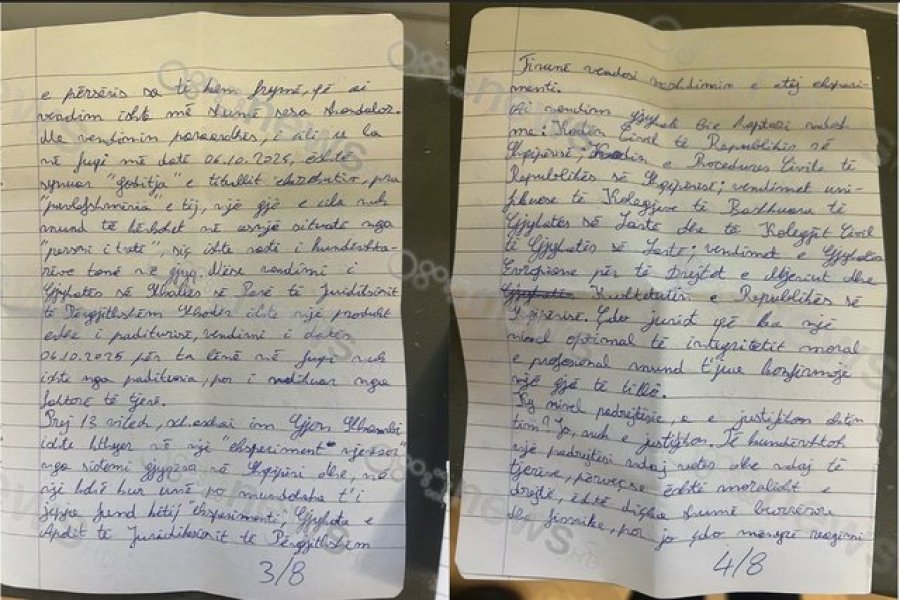 e përsëris sa të kem frymë, që ai
vendim ishte më shumë sesa skandaloz.
Me vendimin paraardhës, i cili u la
në fuqi më datë 06.10.2025, është
synuar "goditja" e titullit ekzekutiv, pra
"pavlefshmëria" e tij, një gjë e cila nuk
mund të kërkohet në asnjë situatë nga
"personi i tretë", siç ishte rasti i kundërshta-
rëve tanë në gjyq. Nëse vendimi i
Gjykatës së Shkallës së Parë të Juridiksionit
të Përgjithshëm Shkodër ishte një produkt
edhe i paditurisë, vendimi i datës
06.10.2025 për ta lënë në fuqi nuk
ishte nga padituria, por i ndikuar nga
faktorë të tjerë.
Prej 13 vitesh, im Gjon
ishte kthyer në një "eksperiment njerëzor"
nga sistemi gjyqësor në Shqipëri dhe, në
një kohë kur unë po mundohesha t'i
jepja fund këtij eksperimenti, Gjykata e
Apelit të Juridiksionit të Përgjithshëm
3/8
Tiranë vendosi vazhdimin e atij eksperi-
menti.
Ai vendim gjyqësor bie ndesh
me: Kodin Civil të Republikës së
Shqipërisë, Kodin e Procedurës Civile të
Republikës së Shqipërisë; vendimet uni-
fikuese të Kolegjeve të Bashkuara të
Gjykatës së Lartë dhe të Kolegjit Civil
të Gjykatës së Lartë; vendimet e Gjykatës
Evropiane për të Drejtat e Njeriut dhe
Kushtetutën e Republikës së
Shqipërisë. Çdo jurist që ka një
nivel optimal të integritetit moral
e profesional mund t'jua konfirmojë
një gjë të tillë.
Ky nivel padrejtësie, a e justifikon aktin
tim? Jo, nuk e justifikon. Të kundërshtosh
një padrejtësi ndaj vetes dhe ndaj të
tjerëve, përveçse është moralisht e
drejtë, është diçka shumë burrërore
dhe fisnike, por jo çdo mënyrë reagimi
4/8
news